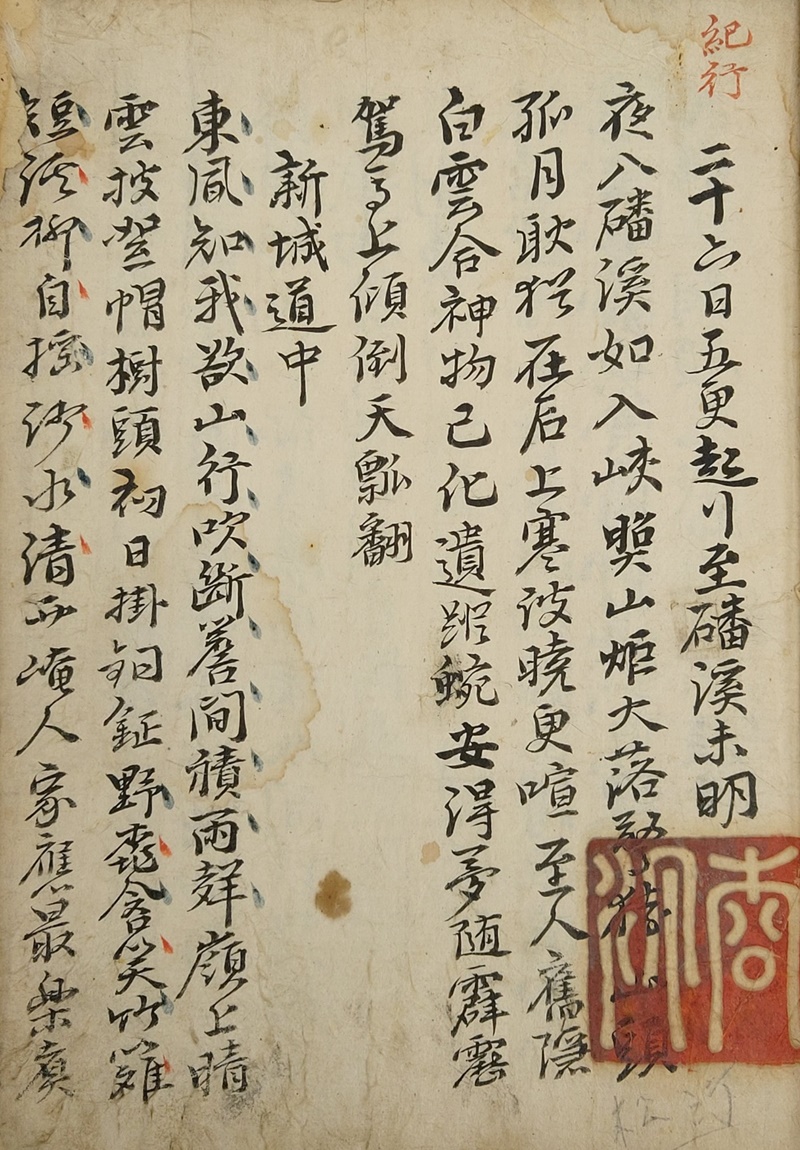 紀行
二十六日五更起行至磻溪未明
夜入磻溪如入峽照山炬火落驚猿山頭
孤月耿猶在石上寒波曉更喧至人舊隱
白雲合神物已化遺蹤蜿安得夢随霹靂
駕馬上傾倒天瓢翻
新城道中
東風知我欲山行吹斷簷間積雨聲嶺上晴
雲披絮帽樹頭初日掛銅鉦野桃含笑竹籬
短溪柳自搖沙水清西崦人家應最樂